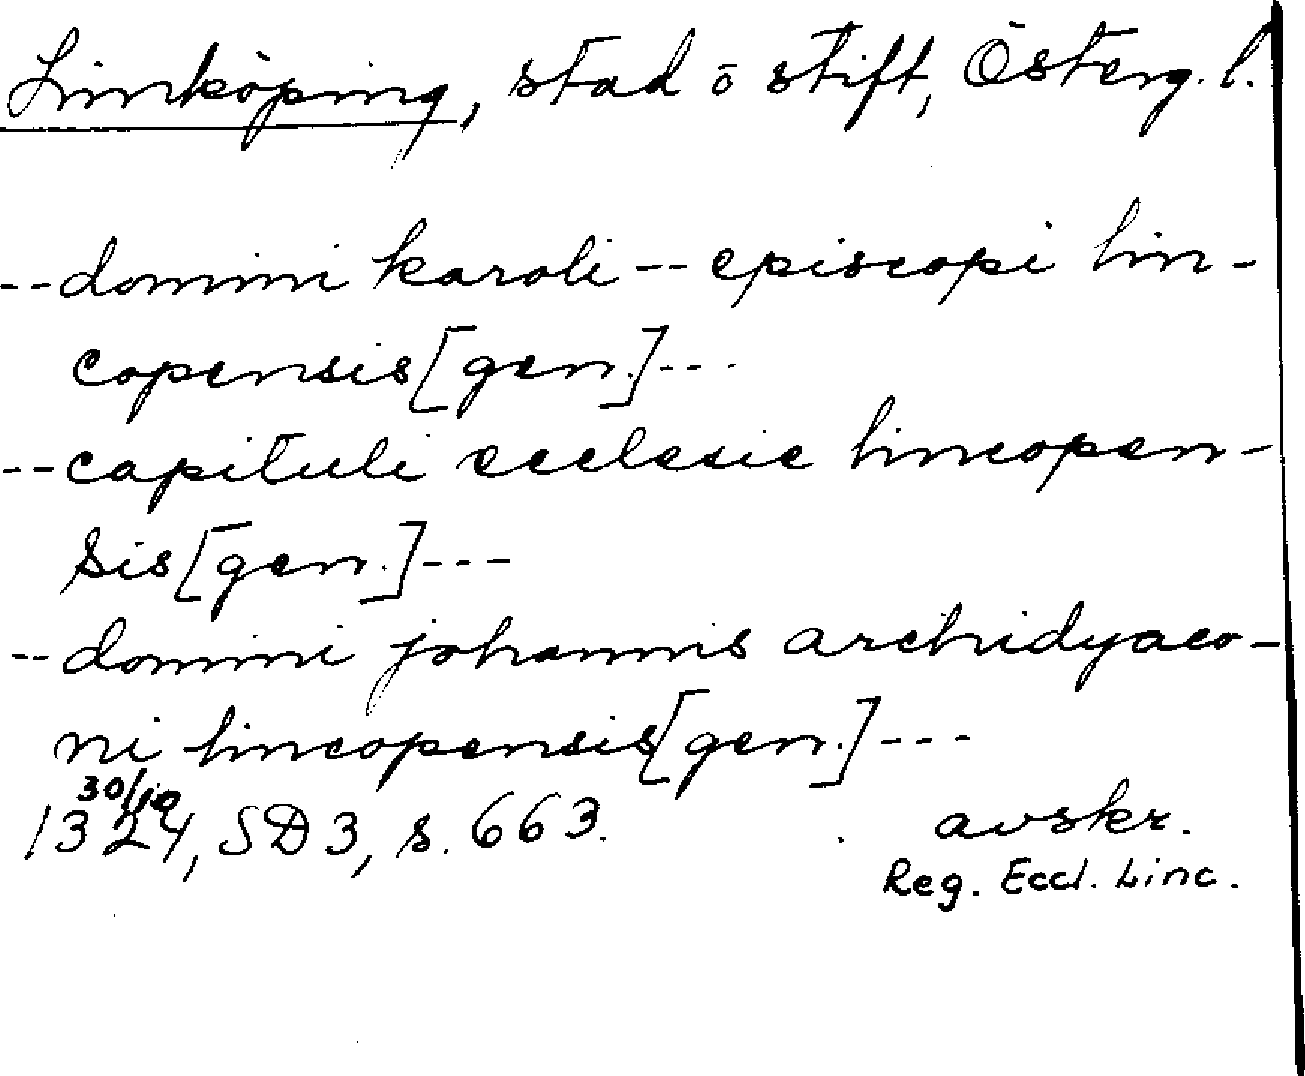 Linköping, stad ō stift, Österg. l.
--domini karoli -- episcopi lin-
copensis [gen.]---
--capituli ecclesie lincopen-
sis [gen.]---
--domini johannis archidyaco-
ni lincopensis [gen.]---
30/10
1324, SD 3, s. 663. avskr.
Reg. Eccl. Linc.